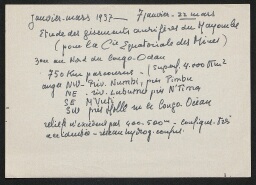 Janvier-mars 1937 — 7 janvier - 22 mars
Etude des gisements aurifères du Mayombe
(pour la Cie Equatoriale des Mines)
au Nord du Congo-Océan
750 Km parcourus - (Superf. 4.000 Km2
angles NW - Riv. Numbi, près
NE - riv. Luburus près N'Tima
SE M'Vuti
SW près Holle sur le Congo-Océan
relief n'excédant pas 400-500m -
accidentée - réseau hydrog. confus.